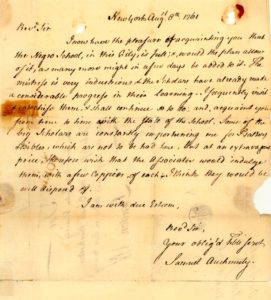 New York Aug.t 8th 1761
Rev.d Sir
I now have the pleasure of acquainting you that
the Negro School, in this City, is full; & would the plan admit
of it, as many more might in a few days be added to it. The
mistress is very industrious, & the Scholars have already made
a considerable progress in their Learning. I frequently visit
& catechise them, & shall continue so to do; and, acquaint you
from time to time with the State of the School. Some of the
big Scholars are constantly importuning me for Psalters,
Bibles, which are not to be had here, but at an extravagant
price. I therefore wish that the Associates would indulge
them, with a few Coppies of each. I think they would be
well disposed of.
I am with due Esteem,
Rev.d Sir,
Your oblig'd Hble Serv.t
Samuel Auchmuty.